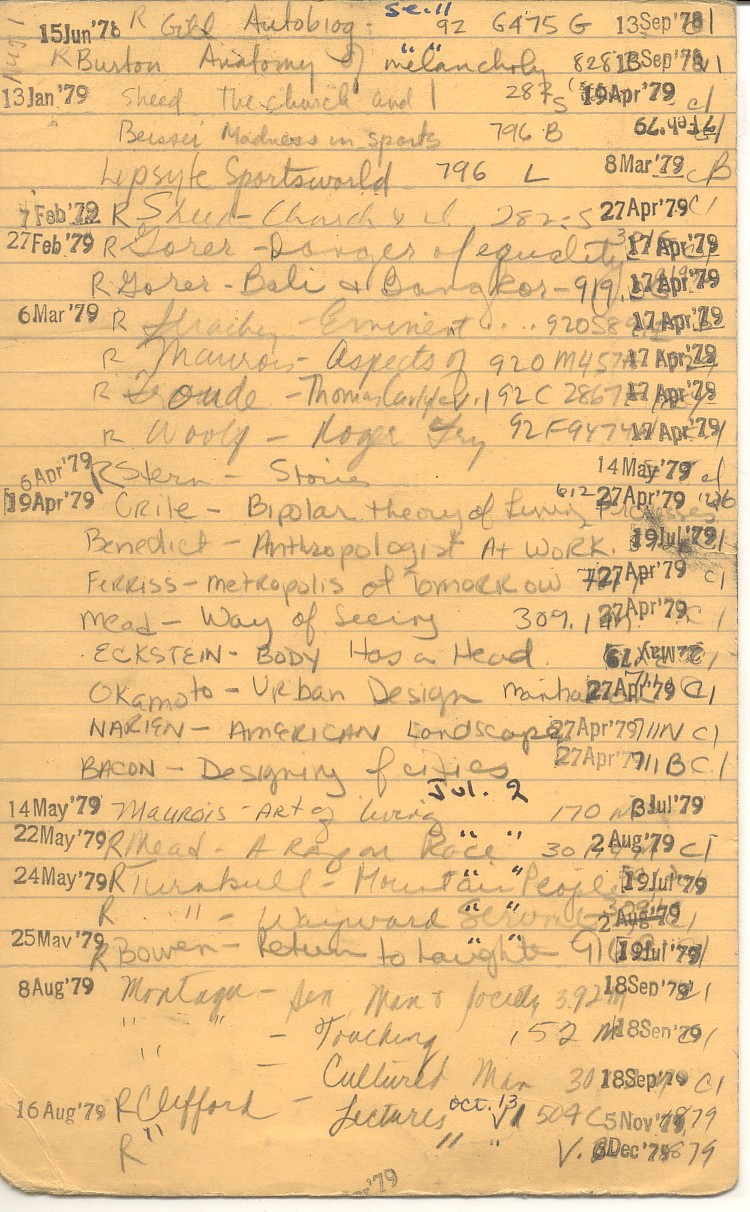 Se. 11
15 Jun '78 R Gill Autobiog. 92 G475 G 13 Sep '78 C1
R Burton Anatomy of melancholy 828 13 Sep '78
13 Jan '79 Sheed The church and I 282 S 19 Apr '79 C1
Beisser Madness in sports 796 B 17 Feb '79
Lipsyte Sportsworld 796 L 8 Mar '79 CB
7 Feb '79 R Sheed - Church & I 282-S 27 Apr '79 C1
27 Feb '79 R Gorer - Danger of equality 17 Apr '79
R Gorer - Bali & Bangkor - 919. 17 Apr '79
6 Mar '79 R Strachey - Eminent .... 920 S89 17 Apr '79
R Maurois - Aspects of 920 M457 17 Apr '79
R Froude - Thomas Carlyle v.1 92 C 286 17 Apr '79
R Woolf - Roger Fry 92 F947 17 Apr '79
6 Apr '79 R Stern - Stories 14 May '79 C1
19 Apr '79 Crile - Bipolar theory of Living Processes 612 27 Apr '79
Benedict - Anthropologist At Work. 19 Jul '79 C1
Ferriss - Metropolis of Tomorrow 27 Apr '79 C1
Mead - Way of Seeing 309.1 27 Apr '79 C1
ECKSTEIN - BODY Has a Head 22 May '79
Okamoto - Urban Design Manhattan 27 Apr '79 C1
NARIEN - AMERICAN Landscape 27 Apr '79 711 N C1
BACON - Designing of cities 27 Apr '79 711 B C.1
Jul. 2
14 May '79 Maurois - Art of living 170 M Jul '79
22 May '79 R Mead - A Rap on Race " " 30 2 Aug '79 C1
24 May '79 R Turnbull - Mountain People 19 Jul '79
R " - Wayward Servants 2 Aug '79
25 May '79 R Bowen - Return to Laughter 19 Jul '79
8 Aug '79 Montagu - Sex, Man & Society 392 M 18 Sep '79 C1
" " - Touching 152 M 18 Sep '79 C1
" - Cultured Man 30 18 Sep '79 C1
16 Aug '79 R Clifford - Lectures Oct. 13 V1 504 C 5 Nov '79 1879
R " " " V. Dec '79 1879
'79